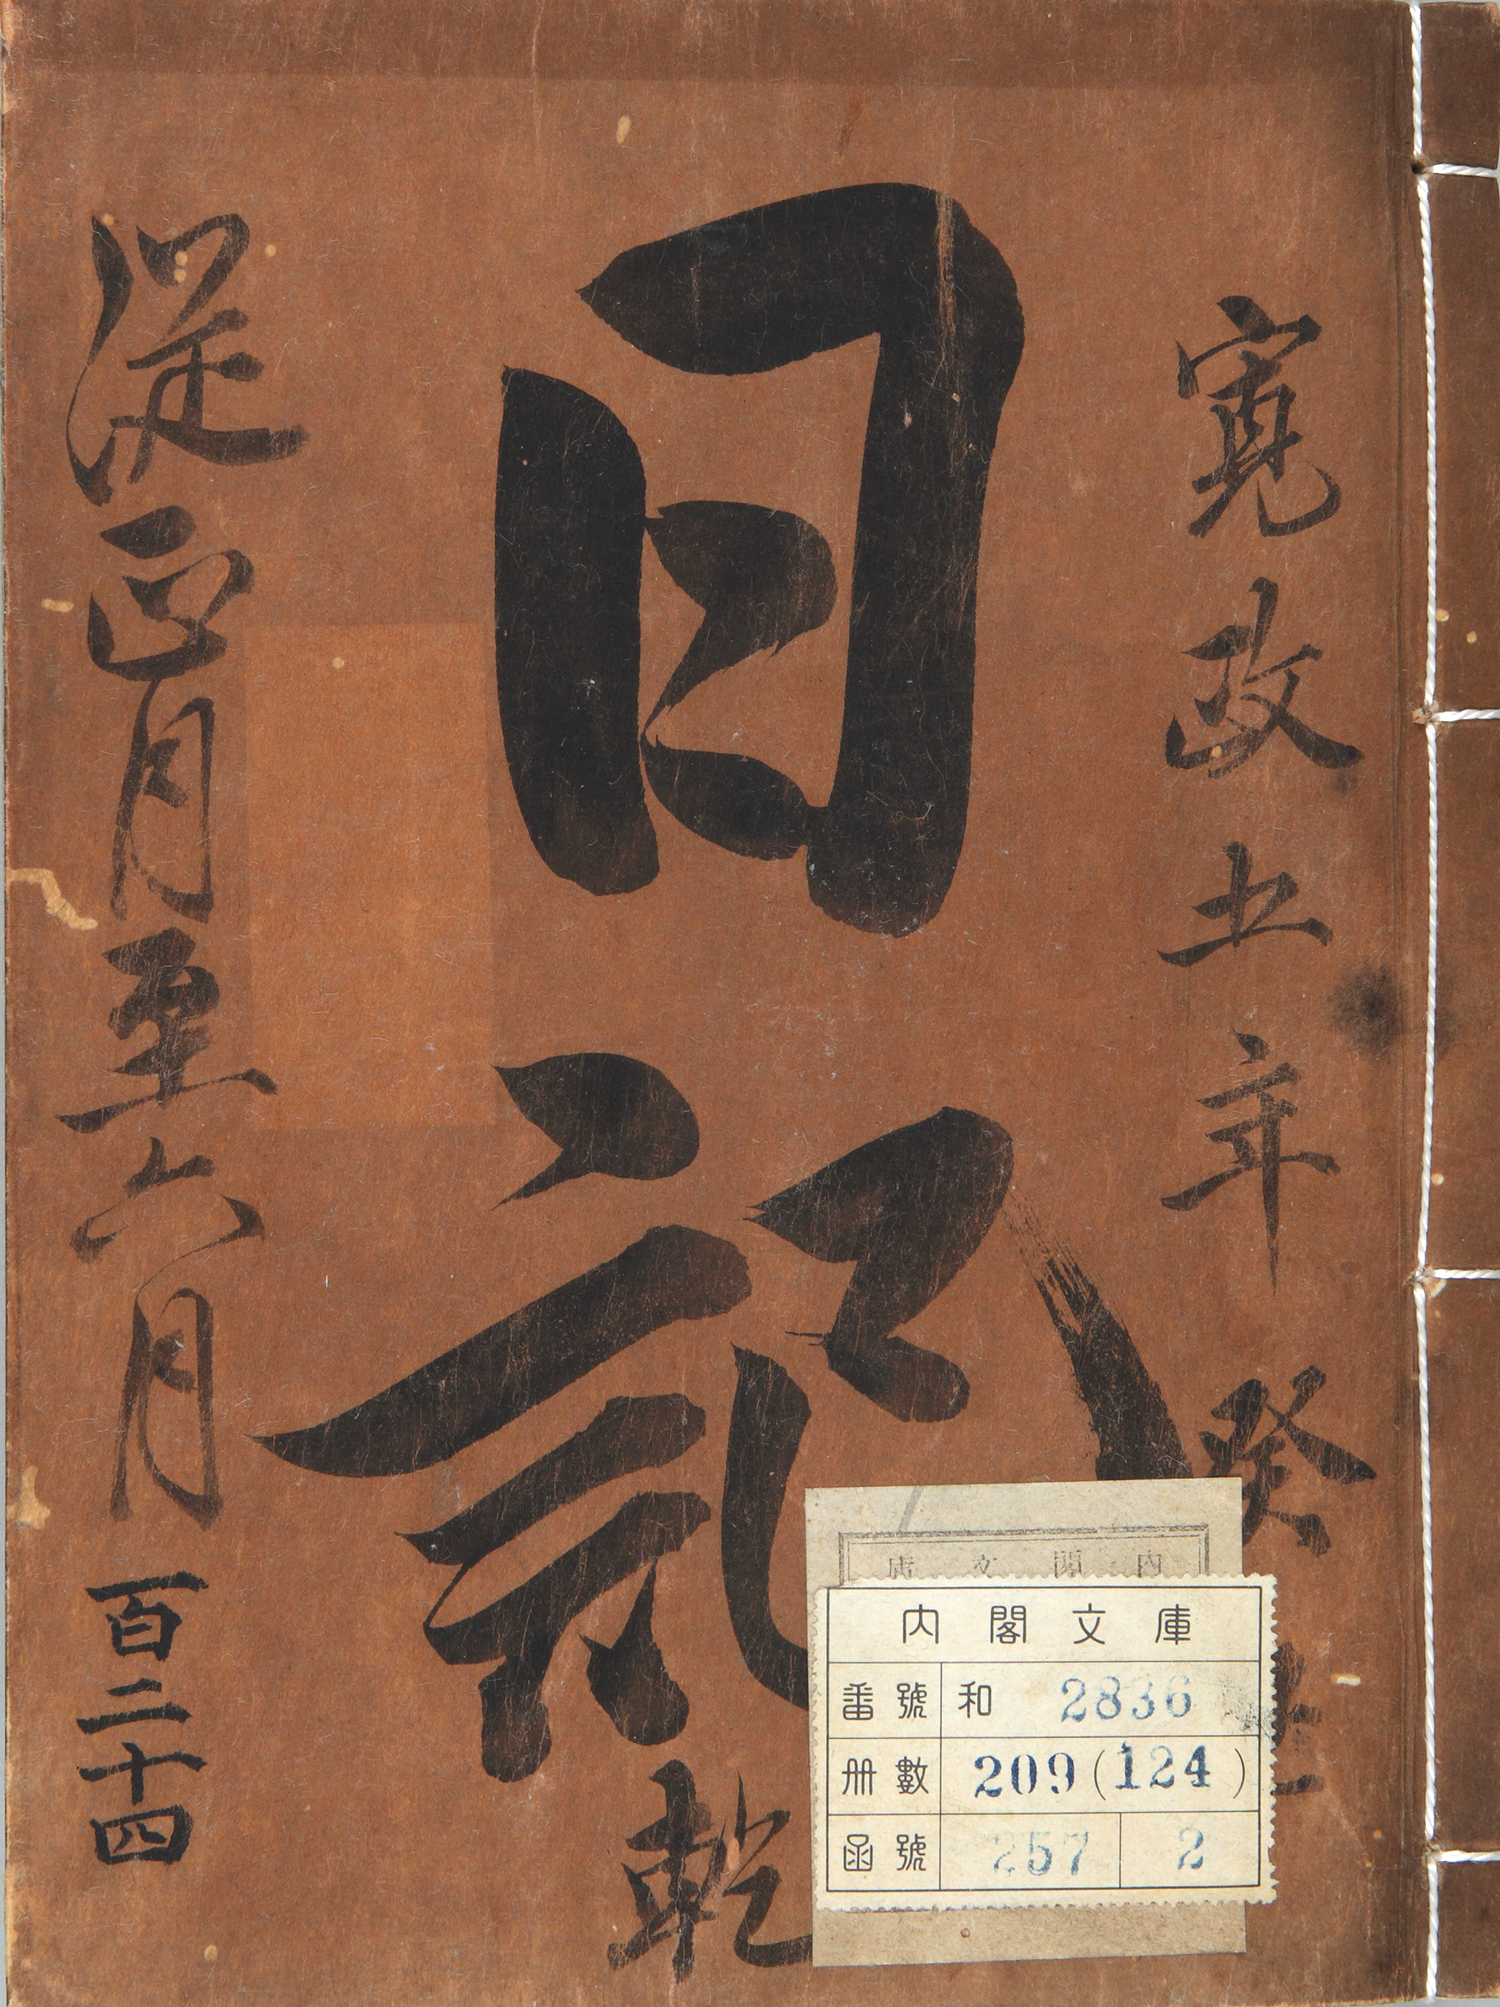 寛政五年癸
日記 乾
從正月至六月 百二十四
内閣文庫
番號 和 2836
冊數 209(124)
函號 257 2